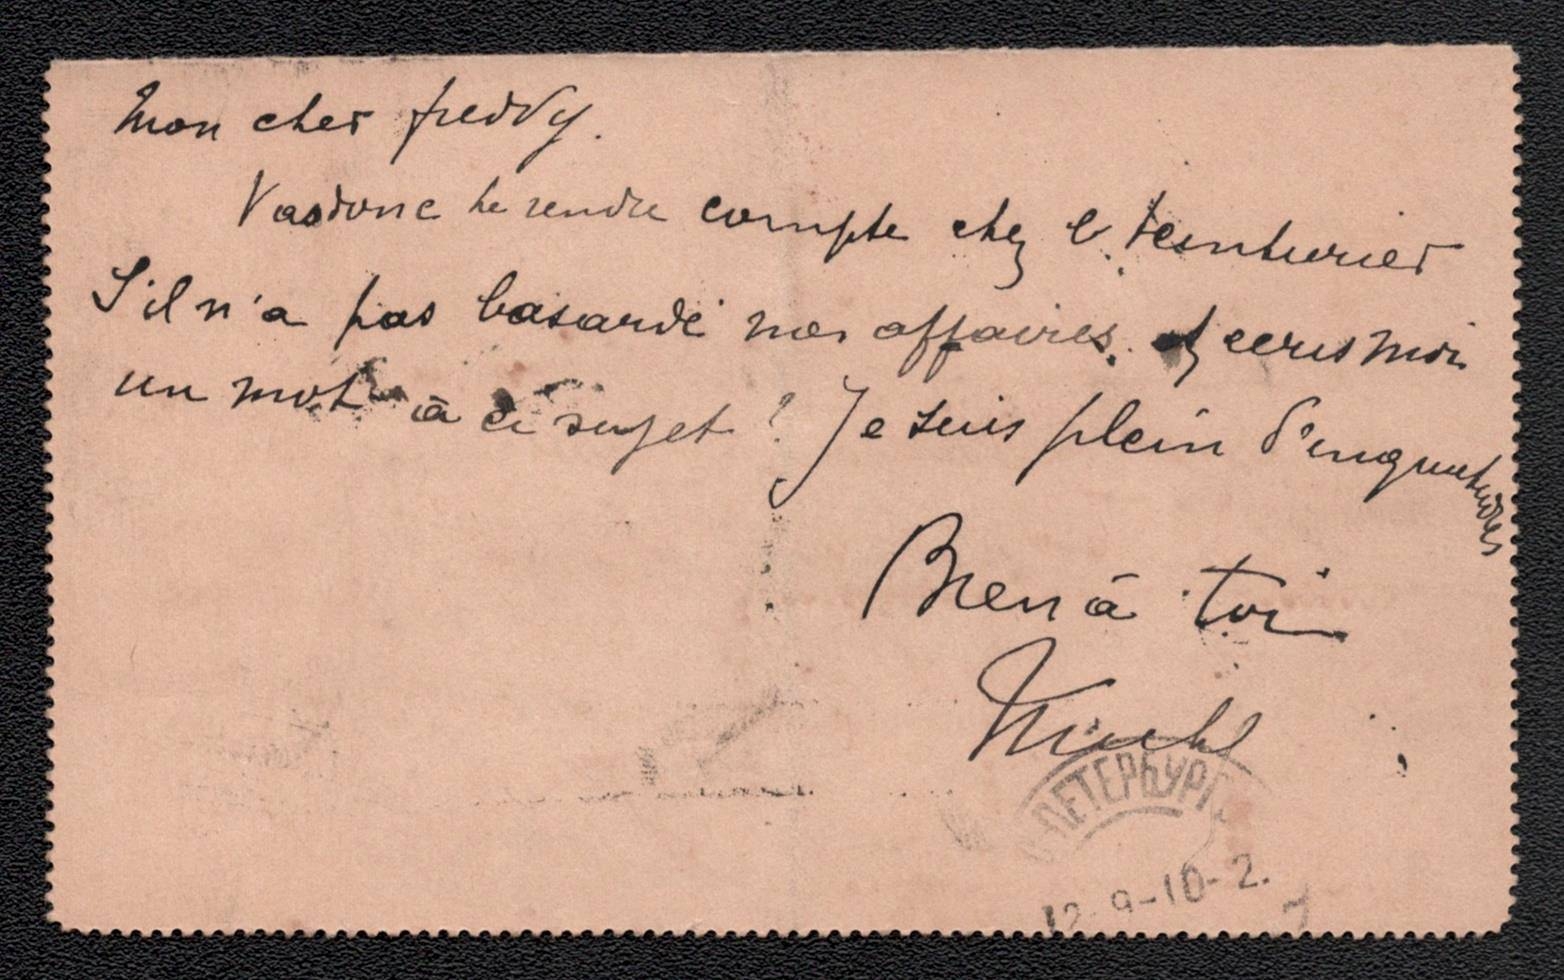 Mon cher freddy.
Vas donc te rendre compte chez le teinturier
S'il n'a pas basardé nos affaires. et ecris moi
un mot à ce sujet ? Je suis plein d'inquietudes
Bien à toi
ПЕТЕРБУРГ
12-9-10-2.